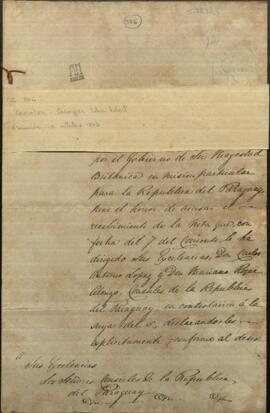 106
por el Gobierno de Su Magestad
Británica en mision particular
para la Republica del Paraguay,
tiene el honor de acusar el
recibimiento de la Nota que, con
fecha del 7 del Corriente, le ha
dirigido Sus Excelencias, Don Carlos
Antonio Lopez y Don Mariano Roque
Alonzo, Consules de la Republica
del Paraguay, en contestacion à la
suya del 5, declarandoles
esplicitamente y conforme al deseo
Sus Excelencias
Los Señores Consules de la Republica
del Paraguay